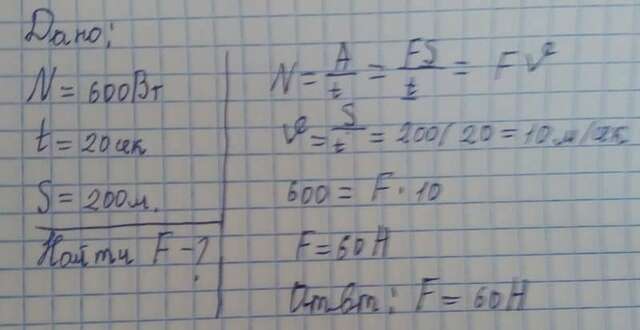 Дано:
N = 600Вт
t = 20сек
S = 200м.
Найти F - ?
N = A/t = FS/t = Fv
v = S/t = 200/20 = 10 м/сек
600 = F · 10
F = 60Н
Ответ: F = 60Н